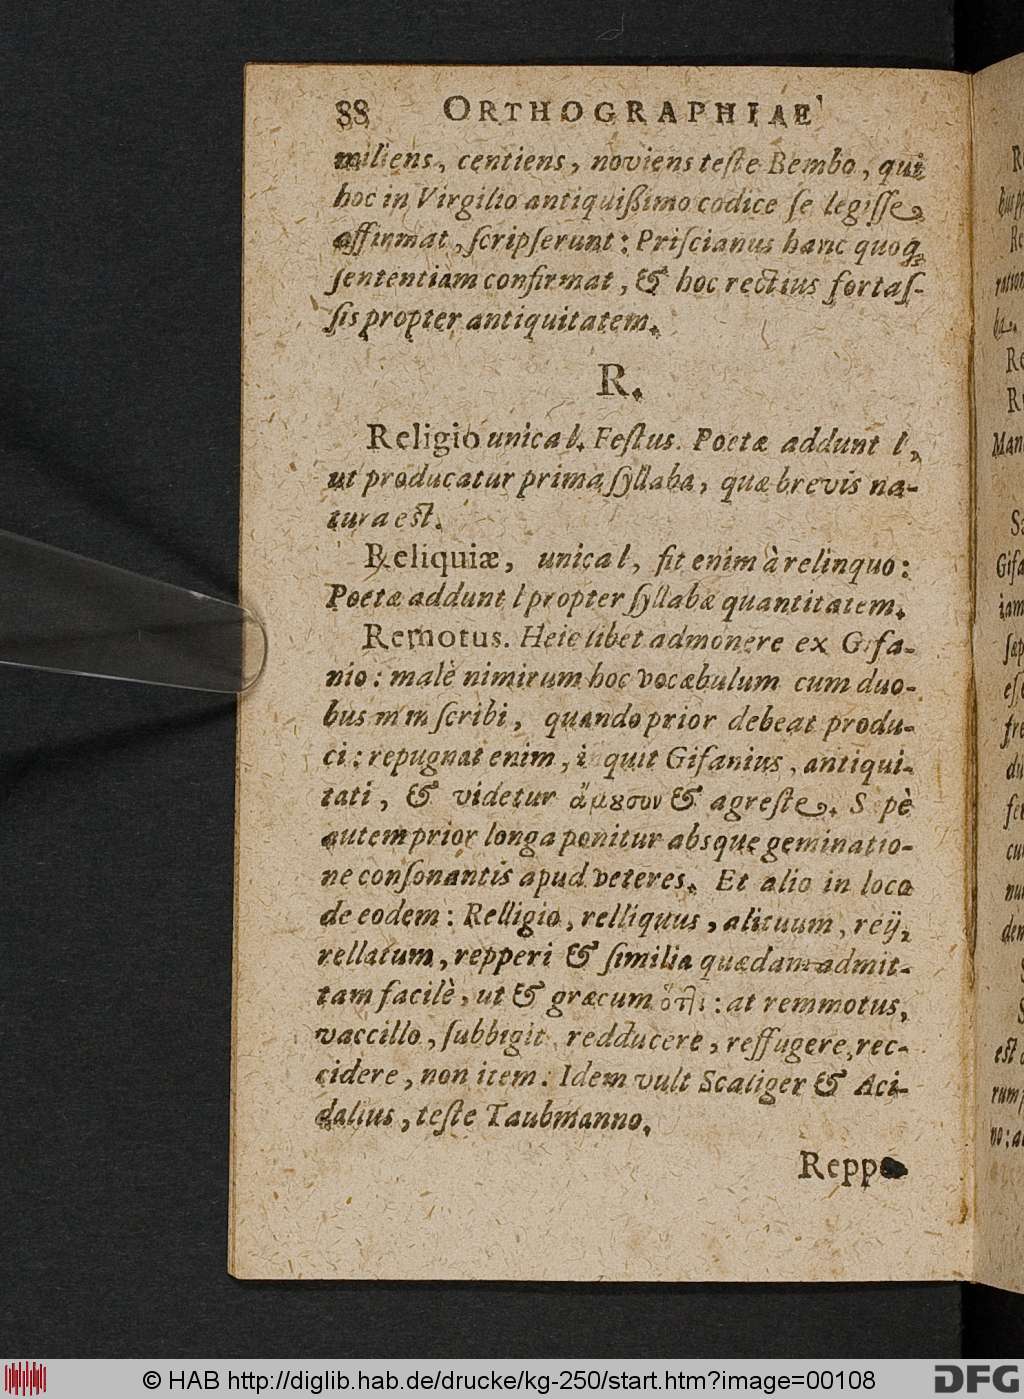 88 ORTHOGRAPHIAE
miliens, centiens, noviens teſte Bembo, qui
hoc in Virgilio antiquißimo codice ſe legiſſe
affirmat, ſcripſerunt: Priſcianus hanc quoq;
ſententiam confirmat, & hoc rectius fortaſ-
ſis propter antiquitatem.
R.
Religio unica l. Feſtus. Poetæ addunt l,
ut producatur prima ſyllaba, quæ brevis na-
tura est.
Reliquiæ, unica l, fit enim à relinquo:
Poetæ addunt l propter ſyllabæ quantitatem.
Remotus. Heic libet admonere ex Gifa-
nio: malè nimirum hoc vocabulum cum duo-
bus m m ſcribi, quando prior debeat produ-
ci: repugnat enim, inquit Gifanius, antiqui-
tati, & videtur ἄμȣσον & agreſte. Sæpè
autem prior longa ponitur absque geminatio-
ne conſonantis apud veteres. Et alio in loco
de eodem: Relligio, relliquus, alituum, reij,
rellatum, repperi & ſimilia quædam admit-
tam facilè, ut & græcum ὅττι: at remmotus,
vaccillo, ſubbigit redducere, reffugere, rec-
cidere, non item. Idem vult Scaliger & Aci-
dalius, teſte Taubmanno.
Reppe
R
Re
Re
Man
Gifa
iam
ſap
fre
du
cu
est
rum
© HAB http://diglib.hab.de/drucke/kg-250/start.htm?image=00108
DFG